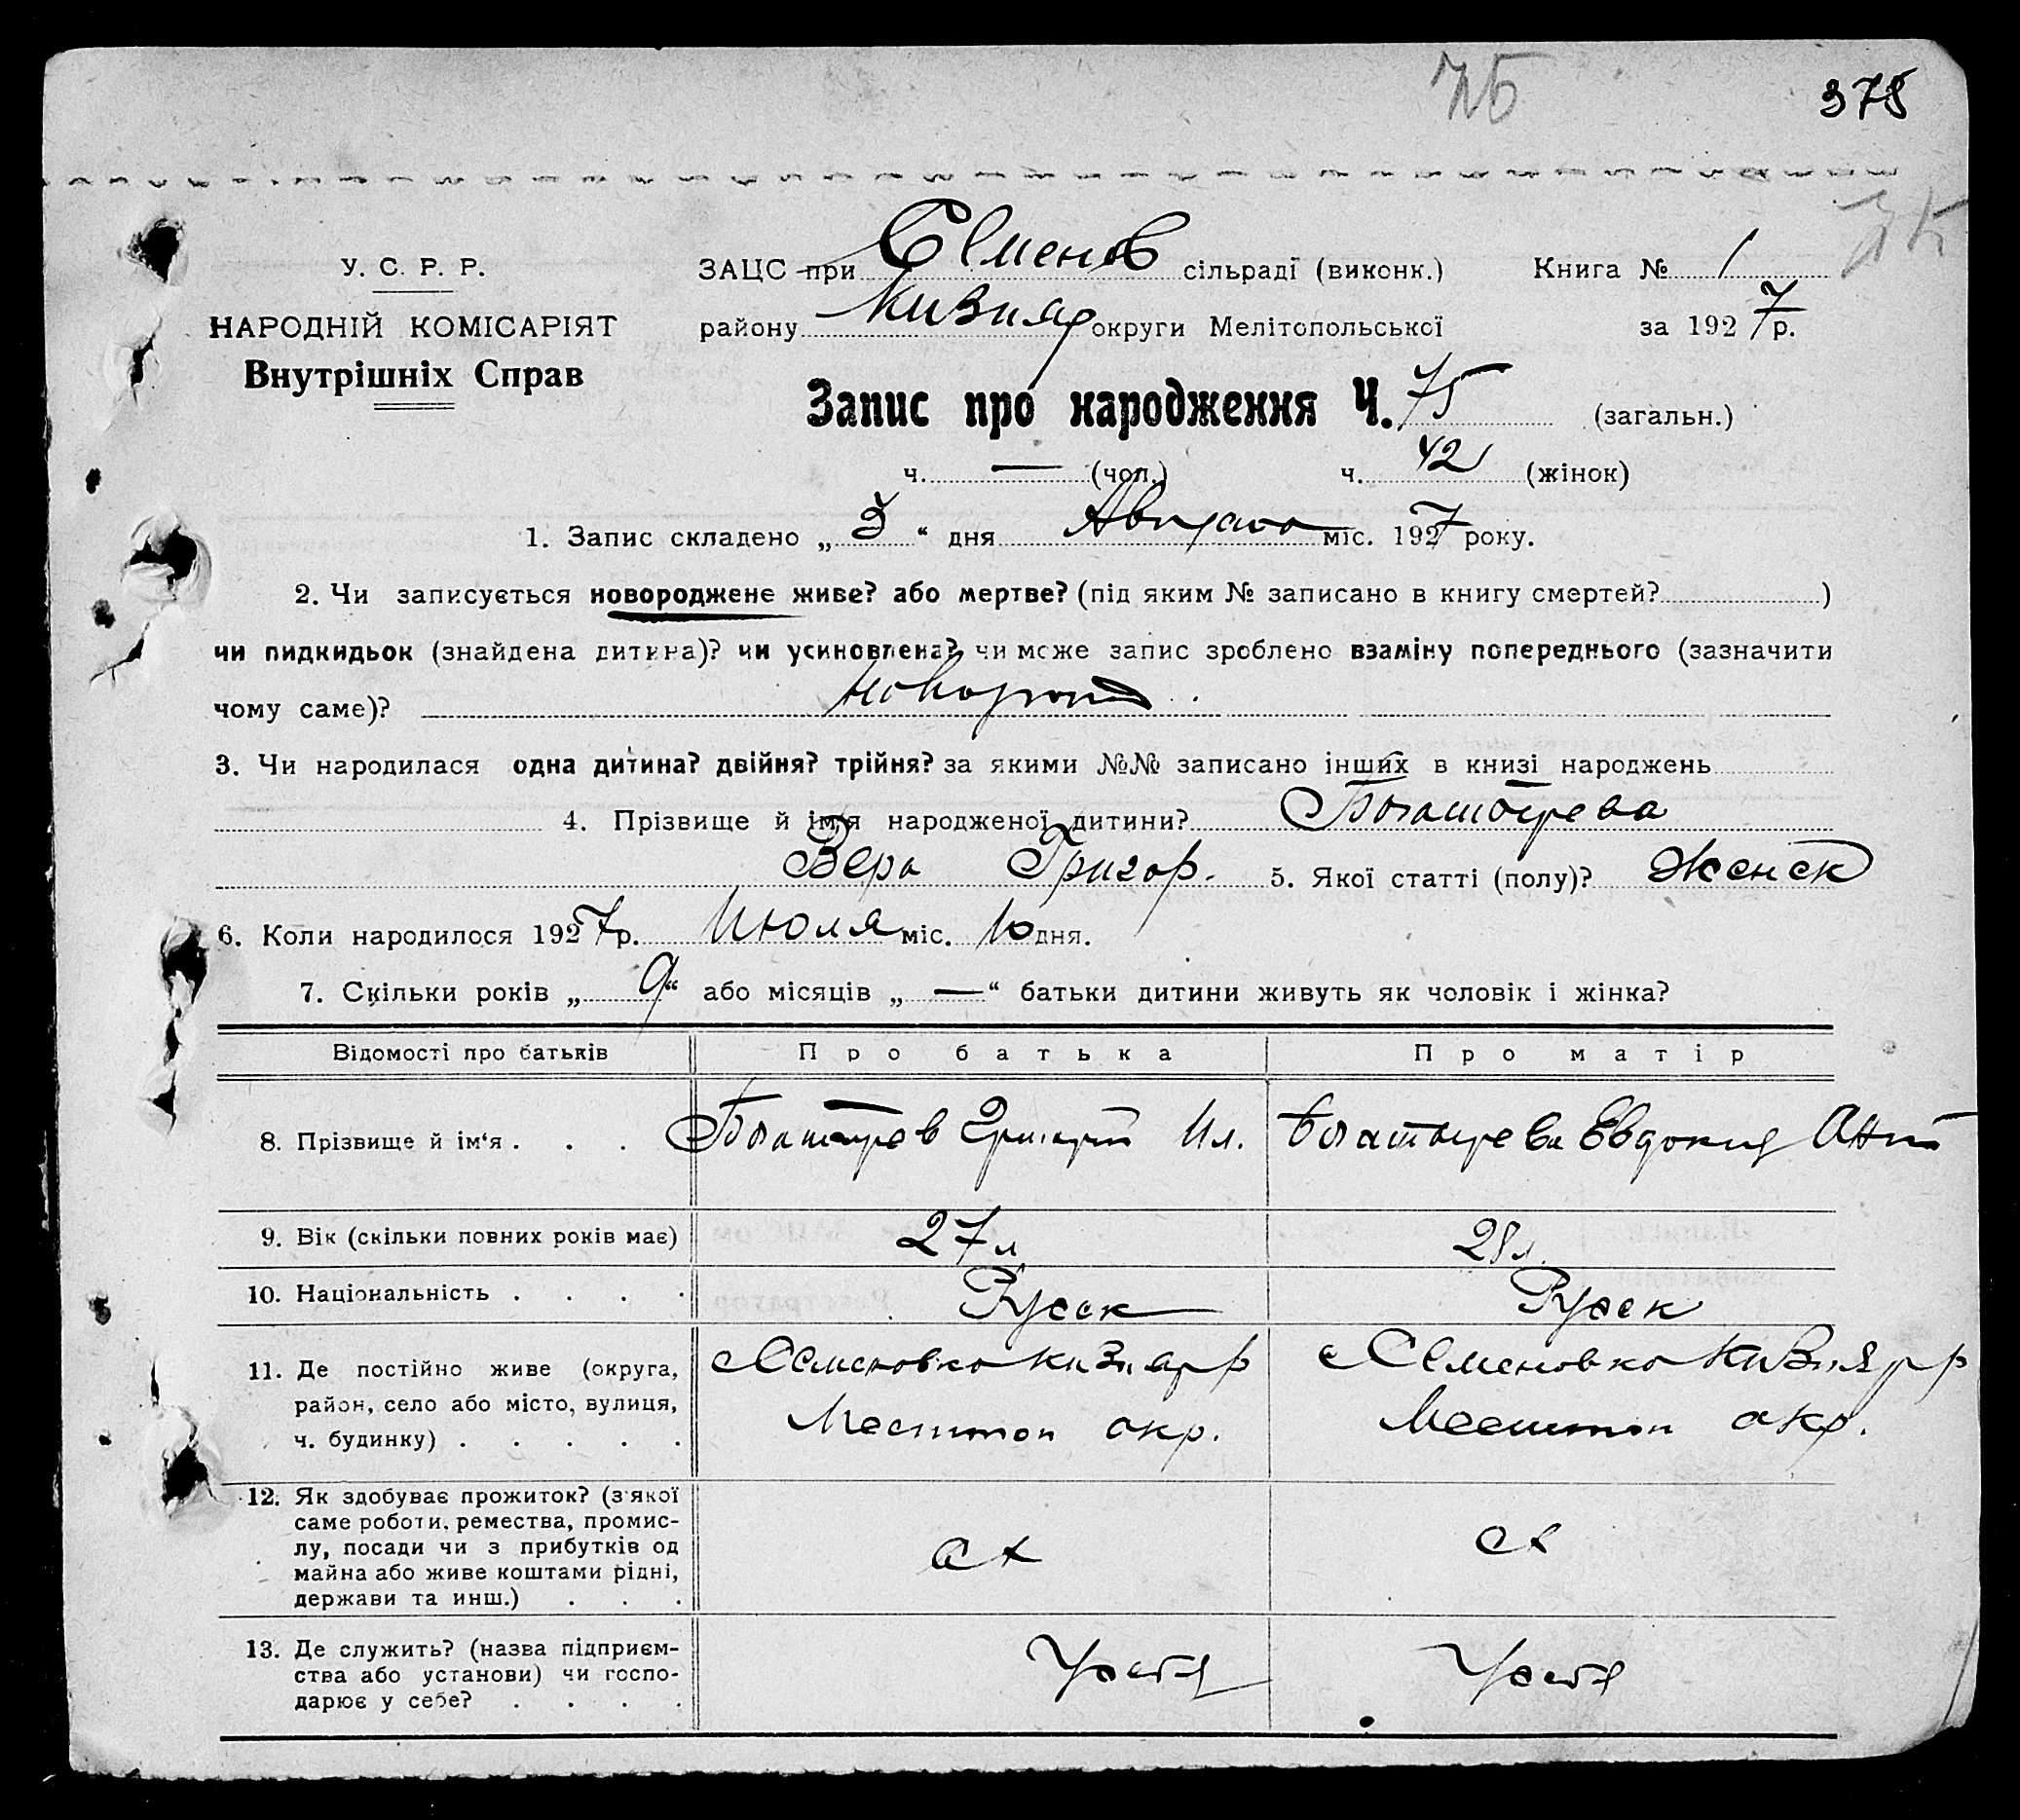 75
378
75
У. С. Р. Р.
НАРОДНІЙ КОМІСАРІЯТ
Внутрішніх Справ
ЗАЦС при Семенов сільраді (виконк.) Книга № 1
району Кизияр округи Мелітопольської за 1927 р.
Запис про народження Ч. 75 (загальн.)
ч. — (чол.) ч. 42 (жінок)
1. Запис складено „ 3 “ дня Августа міс. 1927 року.
2. Чи записується новороджене живе? або мертве? (під яким № записано в книгу смертей? )
чи пидкидьок (знайдена дитина)? чи усиновлена? чи може запис зроблено взаміну попереднього (зазначити
чому саме)? Новорожд
3. Чи народилася одна дитина? двійня? трійня? за якими №№ записано інших в книзі народжень
4. Прізвище й ім'я народженої дитини? Богатырева
Вера Григор. 5. Якої статті (полу)? Женск
6. Коли народилося 1927 р. Июля міс. 10 дня.
7. Скільки років „ 9 “ або місяців „ — “ батьки дитини живуть як чоловік і жінка?
Відомості про батьків Про батька Про матір
8. Прізвище й ім‘я . . . Богатырев Григорий Ил. Богатырева Евдокия
9. Вік (скільки повних років має) 27 л 28 л.
10. Національність . . . . Русск Русск
11. Де постійно живе (округа, Семеновка Кизияр р Семеновка Кизияр р
район, село або місто, вулиця, Мелитоп окр. Мелитоп окр.
ч. будинку) . . . . .
12. Як здобуває прожиток? (з'якої
саме роботи, ремества, промис-
лу, посади чи з прибутків од сх сх
майна або живе коштами рідні,
держави та инш.) . . .
13. Де служить? (назва підприєм-
ства або установи) чи госпо-
дарює у себе? . . . .